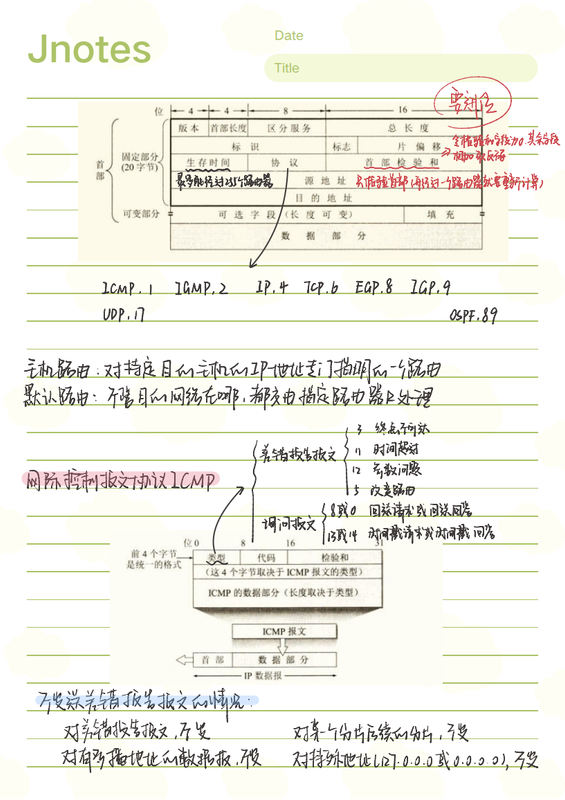 Jnotes
Date
Title
要划全
位 4 4 8 16
版本 首部长度 区分服务 总长度
标识 标志 片偏移
生存时间 协议 首部检验和
源地址
目的地址
可选字段(长度可变) 填充
数据部分
首部
固定部分
(20字节)
可变部分
最多能经过255个路由器
只检验首部(每经过一个路由器就需重新计算)
ICMP.1 IGMP.2 IP.4 TCP.6 EGP.8 IGP.9
UDP.17 OSPF.89
主机路由:对特定目的主机的IP地址专门指明的一个路由
默认路由:不管目的网络在哪,都交由指定路由器R处理
网际控制报文协议ICMP
差错报告报文
3 终点不可达
11 时间超过
12 参数问题
5 改变路由
询问报文
8或0 回送请求或回送回答
13或14 时间戳请求或时间戳回答
位0 8 16 31
前4个字节
是统一的格式
类型 代码 检验和
(这4个字节取决于ICMP报文的类型)
ICMP的数据部分(长度取决于类型)
ICMP报文
首部 数据部分
IP数据报
不发送差错报告报文的情况:
对差错报告报文,不发 对某个分片后续的分片,不发
对有多播地址的数据报,不发 对特殊地址(127.0.0.0或0.0.0.0),不发